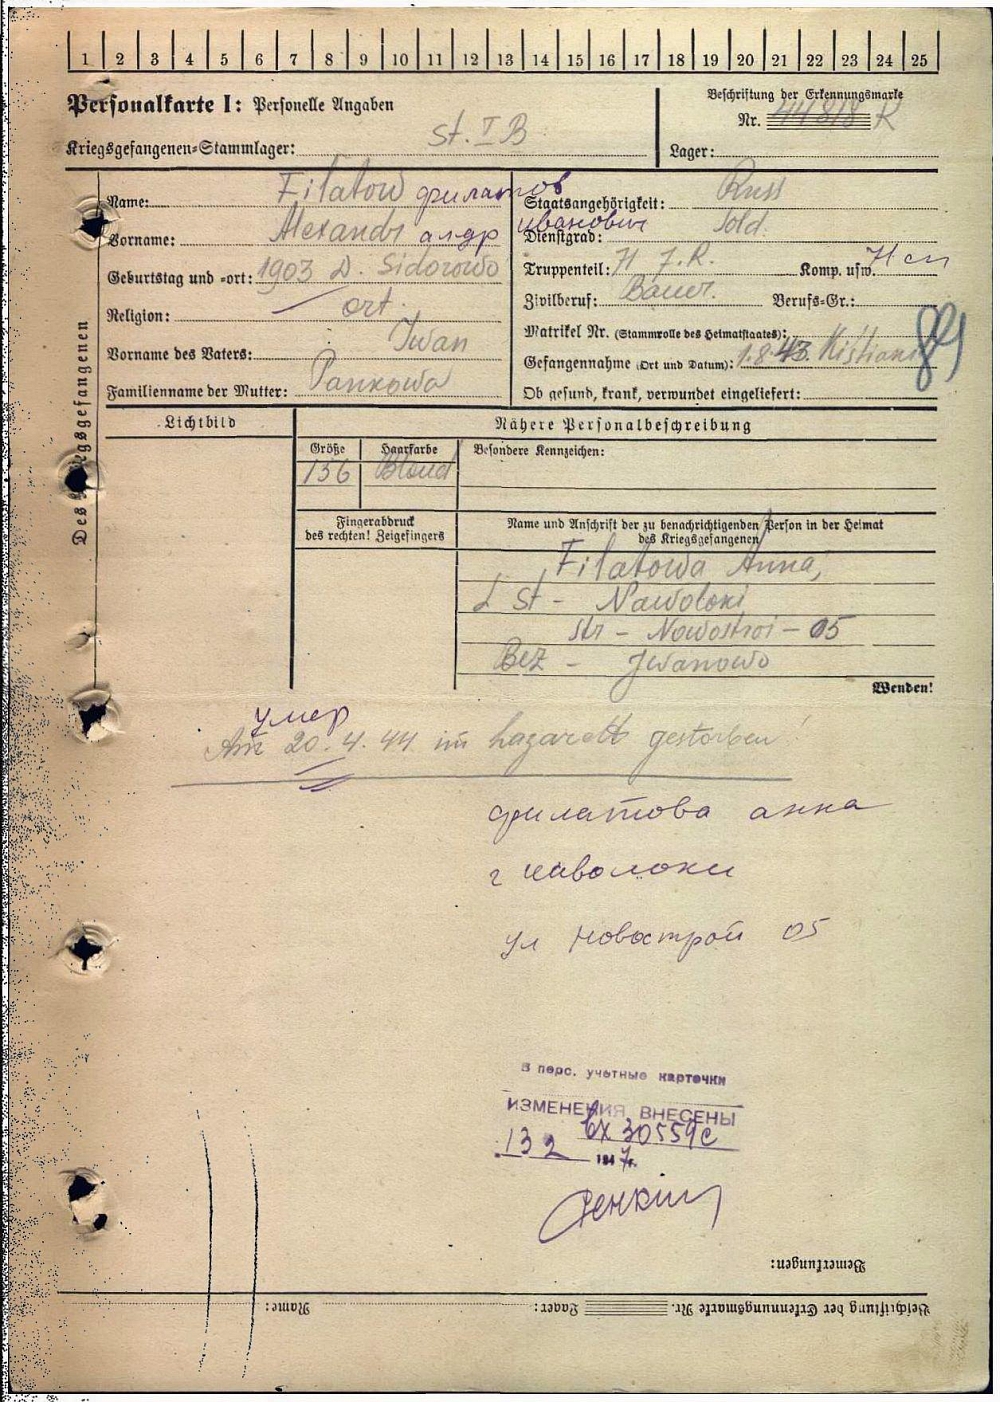 1 2 3 4 5 6 7 8 9 10 11 12 13 14 15 16 17 18 19 20 21 22 23 24 25
Personalkarte I: Personelle Angaben
Beschriftung der Erkennungsmarke
Nr. 44818 R
Kriegsgefangenen-Stammlager: St. I B
Lager:
Des Kriegsgefangenen
Name: Filatow филатов
Staatsangehörigkeit: Russ
Vorname: Alexandr алдр иванович
Dienstgrad: Sold.
Geburtstag und -ort: 1903 D. Sidorowo
Truppenteil: J.R. Komp. usw.:
Religion: ort.
Zivilberuf: Bauer. Berufs-Gr.:
Matrikel Nr. (Stammrolle des Heimatstaates):
Vorname des Vaters: Iwan
Gefangennahme (Ort und Datum): 1.8.43.
89
Familienname der Mutter: Pankowa
Ob gesund, krank, verwundet eingeliefert:
Lichtbild
Nähere Personalbeschreibung
Größe Haarfarbe Besondere Kennzeichen:
156 Blond
Fingerabdruck
des rechten! Zeigefingers
Name und Anschrift der zu benachrichtigenden Person in der Heimat
des Kriegsgefangenen
Filatowa Anna,
St - Nawoloki
str - Nowostroi - 05
Bez - Jwanowo
Wenden!
умер
Am 20.4.44 im Lazarett gestorben
филатова анна
г наволоки
ул Новострой 05
В перс. учетные карточки
ИЗМЕНЕНИЯ ВНЕСЕНЫ
вх 30559с
13 2 1947г.
Bemerkungen:
Beschriftung der Erkennungsmarke Nr. Lager: Name: